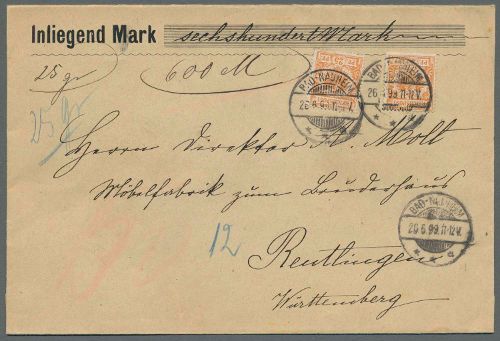 Inliegend Mark sechshundert Mark
25 gr 600 M
25 gr
BAD-NAUHEIM
26.6.99.11-12V.
BAD-NAUHEIM
26.6.99.11-12V.
25 25
Herrn Direktor A. Molt
Möbelfabrik zum Bruderhaus
BAD-NAUHEIM
26.6.99.11-12V.
12
Reutlingen
Württemberg